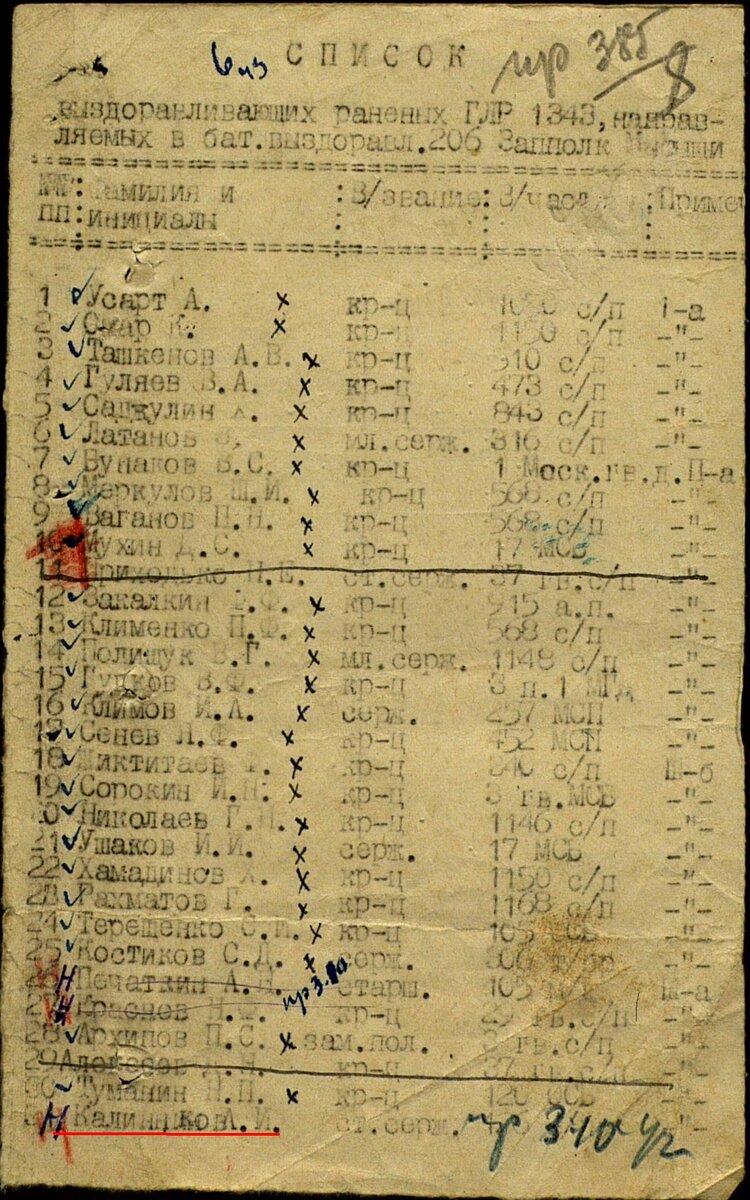 СПИСОК пр 385
8
выздоравливающих раненых ГЛР 1343, направ-
ляемых в бат.выздоравл.206 Заполк
ПП: Фамилия и инициалы : В/звание: В/част : Примеч
1 Усарт А. х кр-ц с/п 1-а
2 Омар К. х кр-ц 1150 с/п -"-
3 Ташкенов А.В. х кр-ц 910 с/п -"-
4 Гуляев В.А. х кр-ц 473 с/п -"-
5 х кр-ц 843 с/п -"-
6 Латанов х мл.серж. с/п -"-
7 Бунаков В.С. х кр-ц 1 Моск.гв.д. П-а
8 Меркулов Ш.И. х кр-ц 568 с/п -"-
9 Ваганов П.Н. х кр-ц 568 с/п -"-
10 Мухин Д.С. х кр-ц 17 МСБ -"-
11 Приходько П.Е. ст.серж. 37 гв.с/п -"-
12 Закалкин х кр-ц 915 а.п. -"-
13 Клименко П.Ф. х кр-ц 568 с/п -"-
14 Полищук В.Г. х мл.серж. 1148 с/п -"-
15 Гудков В.Ф. х кр-ц 3 п.1 -"-
16 Климов И.А. х серж. 257 МСП -"-
17 Сенев Л.Ф. х кр-ц 452 МСП -"-
18 х кр-ц с/п Ш-б
19 Сорокин И.Н. х кр-ц 3 гв.МСБ -"-
20 Николаев Г.П. х кр-ц 1146 с/п -"-
21 Ушаков И.И. х серж. 17 МСБ -"-
22 Хамадинов Х. х кр-ц 1150 с/п -"-
23 Рахматов Г. х кр-ц 1168 с/п -"-
24 Терещенко С.И. х кр-ц 105 -"-
25 Костиков С.Д. х серж. -"-
26 Печаткин А. старш. 105 Ш-а
27 Краснов Н.Ф. кр-ц 29 гв.с/п -"-
28 Архипов П.С. х зам.пол. гв.с/п -"-
29 Алексеев кр-ц 37 гв.с/п -"-
30 Туманин П.П. х кр-ц 120 -"-
Калинников А.И. ст.серж. пр 340